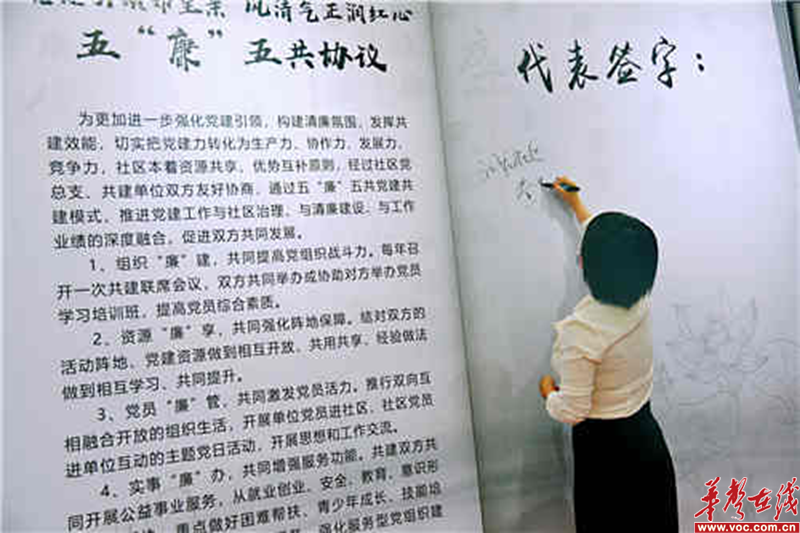 风清气正润红心
五“廉”五共协议
为更加进一步强化党建引领，构建清廉氛围，发挥共
建效能，切实把党建力转化为生产力、协作力、发展力、
竞争力，社区本着资源共享，优势互补原则，经过社区党
总支、共建单位双方友好协商，通过五“廉”五共党建共
建模式，推进党建工作与社区治理、与清廉建设、与工作
业绩的深度融合，促进双方共同发展。
1、组织“廉”建，共同提高党组织战斗力。每年召
开一次共建联席会议，双方共同举办或协助对方举办党员
学习培训班，提高党员综合素质。
2、资源“廉”享，共同强化阵地保障。结对双方的
活动阵地、党建资源做到相互开放、共用共享，经验做法
做到相互学习、共同提升。
3、党员“廉”管，共同激发党员活力。推行双向互
相融合开放的组织生活，开展单位党员进社区，社区党员
进单位互动的主题党日活动，开展思想和工作交流。
4、实事“廉”办，共同增强服务功能。共建双方共
同开展公益事业服务，从就业创业、安全、教育、意识形
重点做好困难帮扶、青少年成长、技能培
强化服务型党组织建
代表签字：
华声在线
www.voc.com.cn